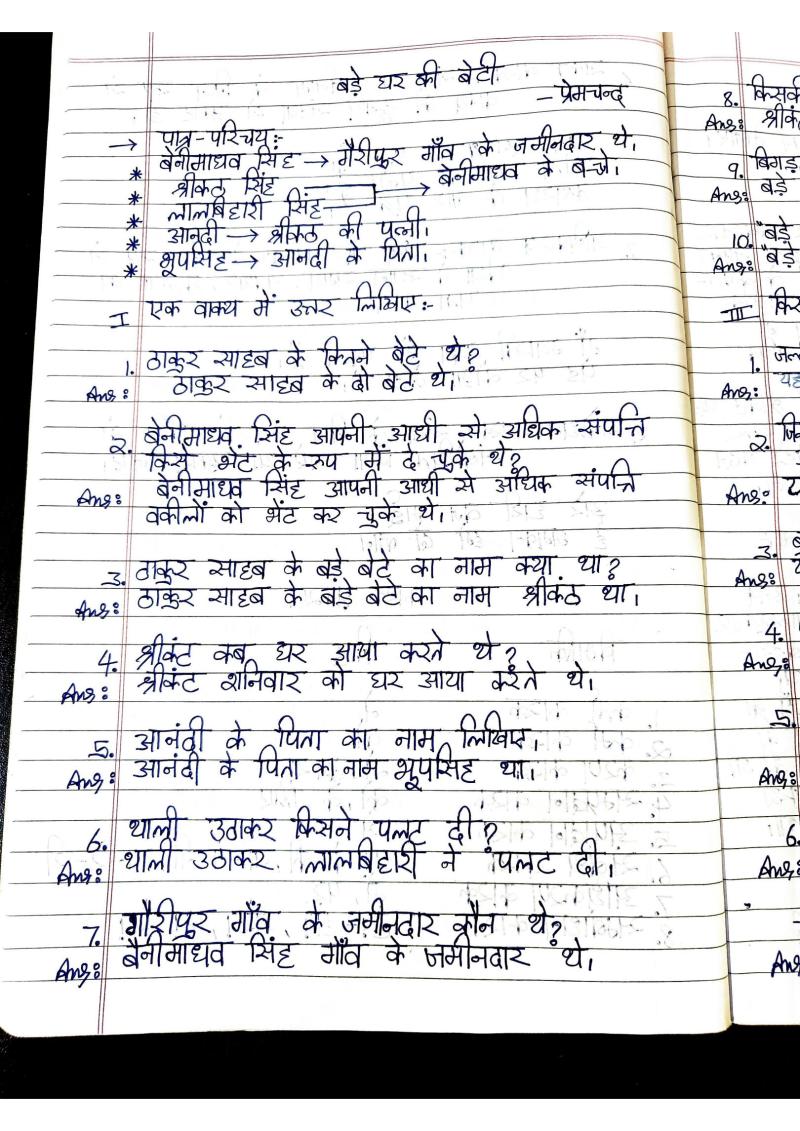 बड़े घर की बेटी
- प्रेमचन्द
→ पात्र-परिचय:-
* बेनीमाधव सिंह → गौरीपुर गाँव के जमीनदार थे।
* श्रीकंठ सिंह
* लालबिहारी सिंह → बेनीमाधव के बच्चे।
* आनंदी → श्रीकंठ की पत्नी।
* भूपसिंह → आनंदी के पिता।
I एक वाक्य में उत्तर लिखिए:-
1. ठाकुर साहब के कितने बेटे थे?
Ans: ठाकुर साहब के दो बेटे थे।
2. बेनीमाधव सिंह आपनी आधी से अधिक संपत्ति
किसे भेंट के रुप में दे चुके थे?
Ans: बेनीमाधव सिंह आपनी आधी से अधिक संपत्ति
वकीलों को भेंट कर चुके थे।
3. ठाकुर साहब के बड़े बेटे का नाम क्या था?
Ans: ठाकुर साहब के बड़े बेटे का नाम श्रीकंठ था।
4. श्रीकंट कब घर आया करते थे?
Ans: श्रीकंट शनिवार को घर आया करते थे।
5. आनंदी के पिता का नाम लिखिए।
Ans: आनंदी के पिता का नाम भूपसिंह था।
6. थाली उठाकर किसने पलट दी?
Ans: थाली उठाकर लालबिहारी ने पलट दी।
7. गौरीपुर गाँव के जमीनदार कौन थे?
Ans: बेनीमाधव सिंह गाँव के जमीनदार थे।
8.
Ans:
9. बिगड़
Ans: बड़े
10. "बड़े
Ans: "बड़े
III
1.
Ans:
2.
Ans:
3.
Ans:
4.
Ans:
5.
Ans:
6.
Ans: